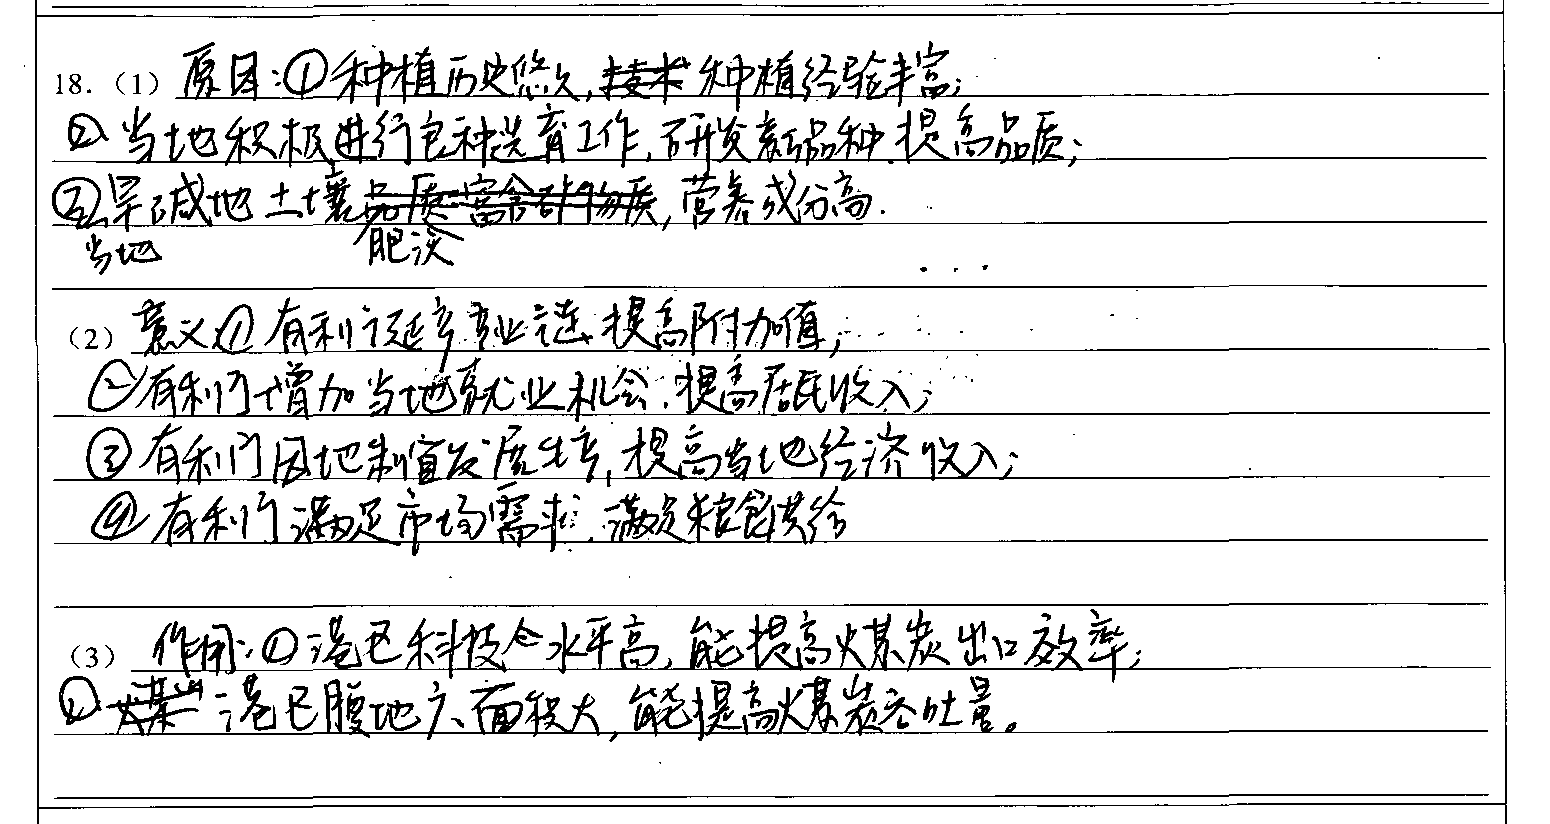 18.（1）原因:①种植历史悠久,技术 种植经验丰富;
②当地积极进行良种选育工作,研发新品种,提高品质;
③旱碱地土壤品质富含矿物质,营养成分高.
当地 肥沃
（2）意义①有利于延长产业链,提高附加值;
②有利于增加当地就业机会,提高居民收入;
③有利于因地制宜发展生产,提高当地经济收入;
④有利于满足市场需求,满足粮食供给
（3）作用:①港口科技水平高,能提高煤炭出口效率;
②港口腹地广面积大,能提高煤炭吞吐量。